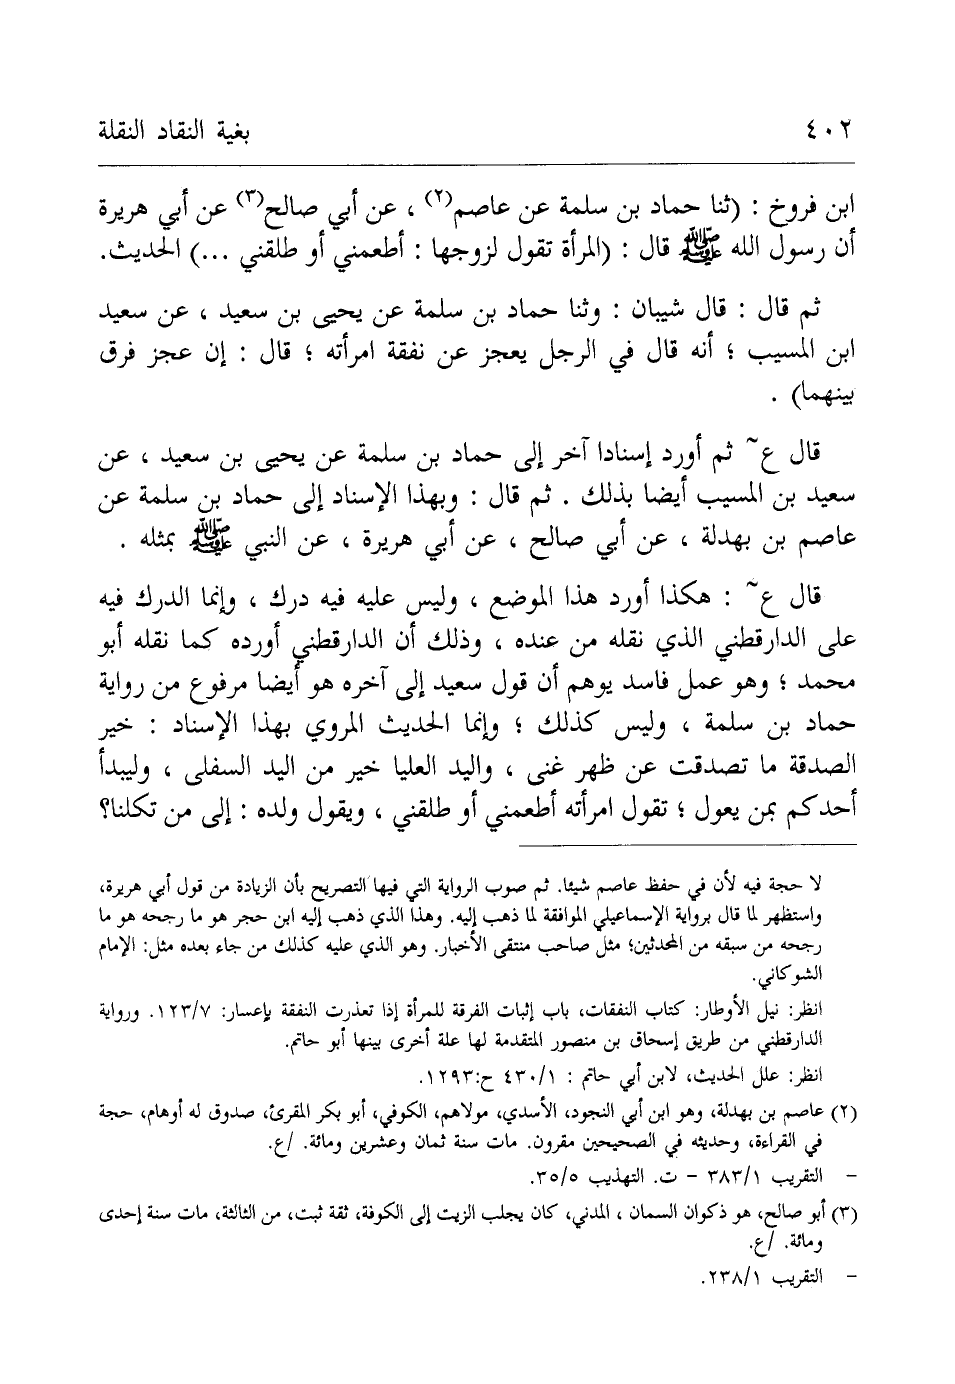 ٤٠٢ بغية النقاد النقلة
ابن فروخ : (ثنا حماد بن سلمة عن عاصم(٢) ، عن أبي صالح(٣) عن أبي هريرة
أن رسول الله ﷺ قال : (المرأة تقول لزوجها : أطعمني أو طلقني ...) الحديث.
ثم قال : قال شيبان : وثنا حماد بن سلمة عن يحيى بن سعيد ، عن سعيد
ابن المسيب ؛ أنه قال في الرجل يعجز عن نفقة امرأته ؛ قال : إن عجز فرق
بينهما) .
قال ع~ ثم أورد إسنادا آخر إلى حماد بن سلمة عن يحيى بن سعيد ، عن
سعيد بن المسيب أيضا بذلك . ثم قال : وبهذا الإسناد إلى حماد بن سلمة عن
عاصم بن بهدلة ، عن أبي صالح ، عن أبي هريرة ، عن النبي ﷺ بمثله .
قال ع~ : هكذا أورد هذا الموضع ، وليس عليه فيه درك ، وإنما الدرك فيه
على الدارقطني الذي نقله من عنده ، وذلك أن الدارقطني أورده كما نقله أبو
محمد ؛ وهو عمل فاسد يوهم أن قول سعيد إلى آخره هو أيضا مرفوع من رواية
حماد بن سلمة ، وليس كذلك ؛ وإنما الحديث المروي بهذا الإسناد : خير
الصدقة ما تصدقت عن ظهر غنى ، واليد العليا خير من اليد السفلى ، وليبدأ
أحدكم بمن يعول ؛ تقول امرأته أطعمني أو طلقني ، ويقول ولده : إلى من تكلنا؟
لا حجة فيه لأن في حفظ عاصم شيئا. ثم صوب الرواية التي فيها التصريح بأن الزيادة من قول أبي هريرة،
واستظهر لما قال برواية الإسماعيلي الموافقة لما ذهب إليه. وهذا الذي ذهب إليه ابن حجر هو ما رجحه هو ما
رجحه من سبقه من المحدثين؛ مثل صاحب منتقى الأخبار. وهو الذي عليه كذلك من جاء بعده مثل: الإمام
الشوكاني.
انظر: نيل الأوطار: كتاب النفقات، باب إثبات الفرقة للمرأة إذا تعذرت النفقة بإعسار: ١٢٣/٧. ورواية
الدارقطني من طريق إسحاق بن منصور المتقدمة لها علة أخرى بينها أبو حاتم.
انظر: علل الحديث، لابن أبي حاتم : ٤٣٠/١ ح:١٢٩٣.
(٢) عاصم بن بهدلة، وهو ابن أبي النجود، الأسدي، مولاهم، الكوفي، أبو بكر المقرئ، صدوق له أوهام، حجة
في القراءة، وحديثه في الصحيحين مقرون. مات سنة ثمان وعشرين ومائة. /ع.
– التقريب ٣٨٣/١ – ت. التهذيب ٣٥/٥.
(٣) أبو صالح، هو ذكوان السمان ، المدني، كان يجلب الزيت إلى الكوفة، ثقة ثبت، من الثالثة، مات سنة إحدى
ومائة. /ع.
– التقريب ٢٣٨/١.